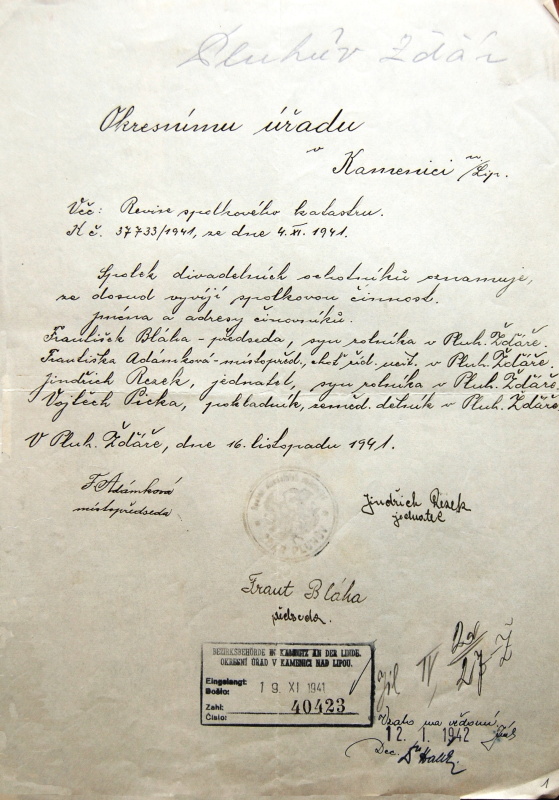 Pluhův Žďár
Okresnímu úřadu
v
Kamenici n/Lip.
Věc: Revise spolkového katastru.
K č. 37733/1941, ze dne 4. XI. 1941.
Spolek divadelních ochotníků oznamuje,
že dosud vyvíjí spolkovou činnost.
jména a adresy činovníků.
František Bláha - předseda, syn rolníka v Pluh. Žďáře.
Františka Adámková - místopřed., choť říd. učit. v Pluh. Žďáře.
Jindřich Resek, jednatel, syn rolníka v Pluh. Žďáře
Vojtěch Picka, pokladník, zeměd. dělník v Pluh. Žďáře
V Pluh. Žďáře, dne 16. listopadu 1941.
F. Adámková
místopředseda
Jindřich Resek
jednatel
Frant Bláha
předseda.
BEZIRKSBEHÖRDE IN KAMENITZ AN DER LINDE.
OKRESNÍ ÚŘAD V KAMENICI NAD LIPOU.
Eingelangt:
Došlo: 19. XI 1941
Zahl: 40423
Číslo:
IV
Vzato na vědomí
12. I. 1942
1